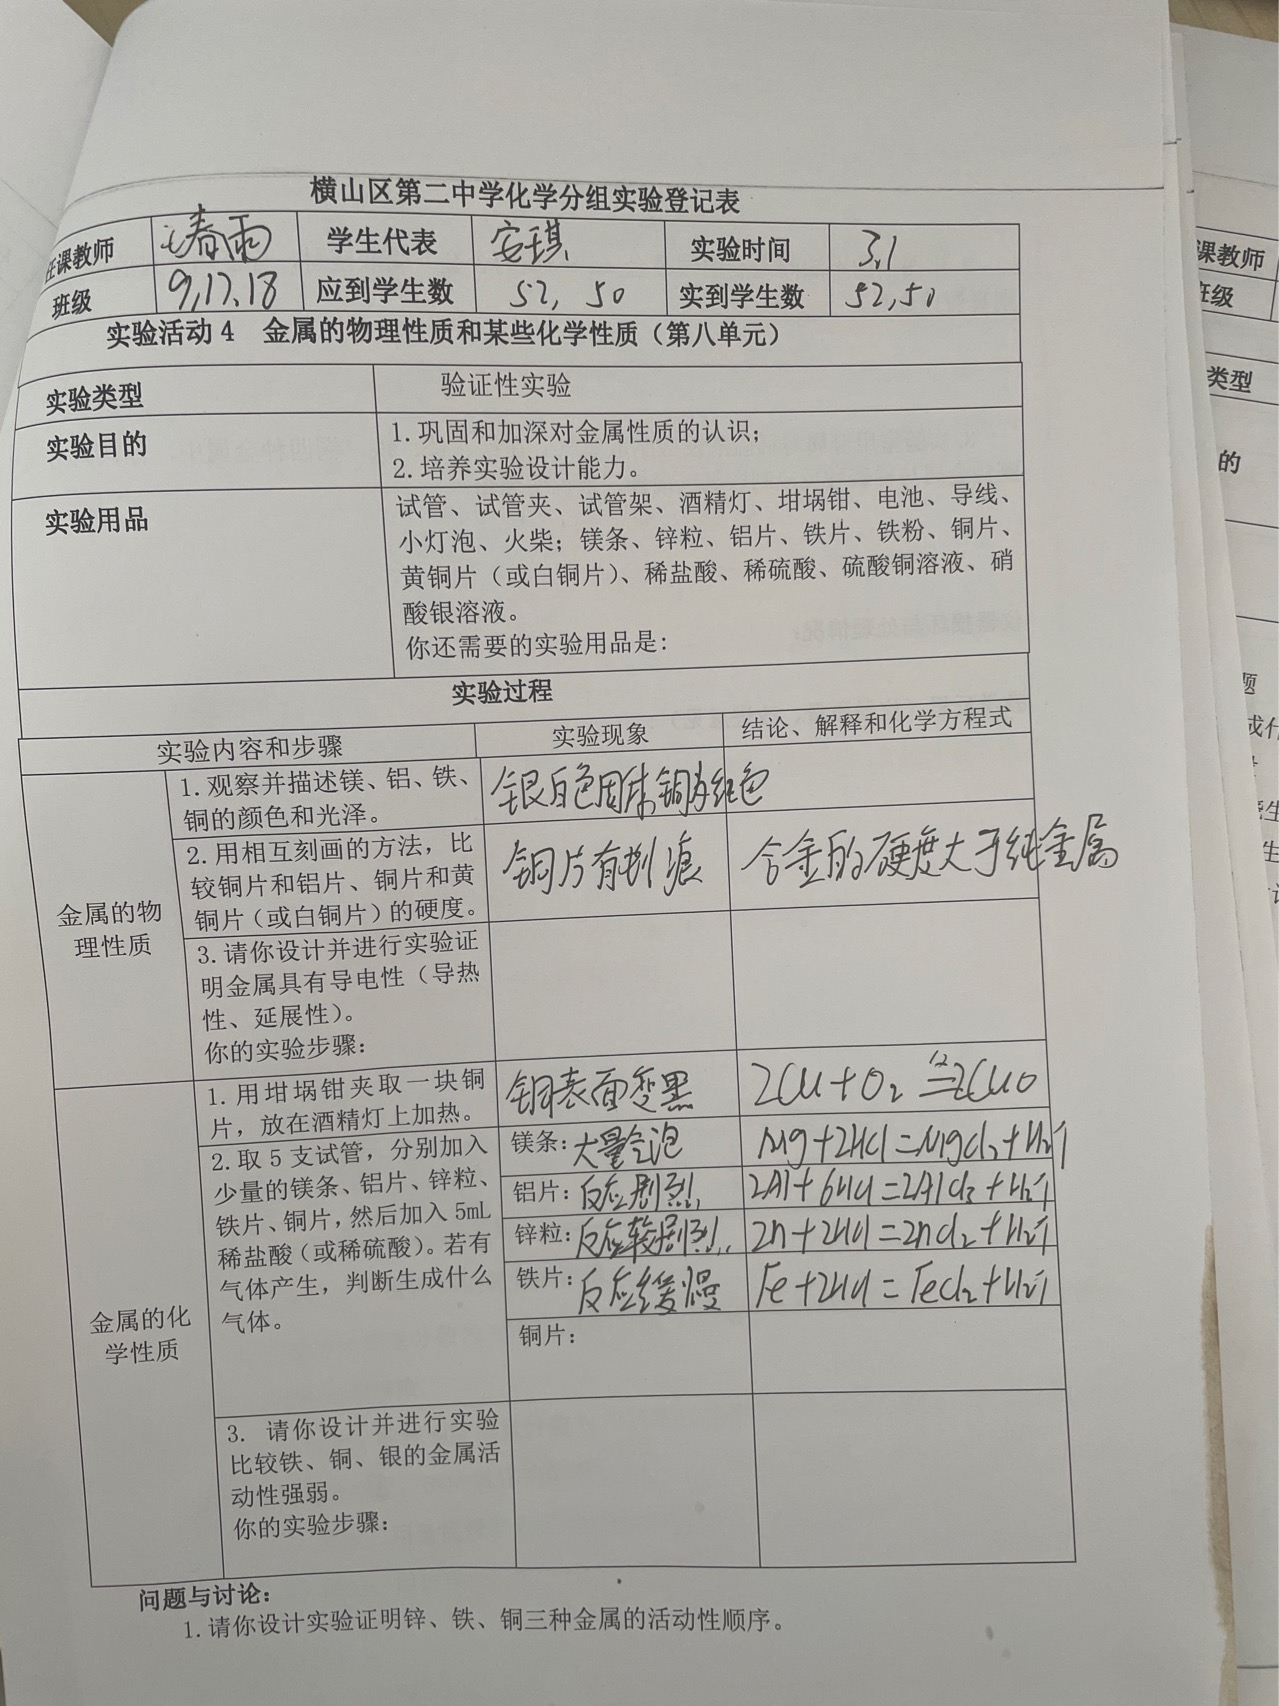 横山区第二中学化学分组实验登记表
任课教师 春雨 学生代表 安琪 实验时间 3.1
班级 9,17.18 应到学生数 52, 50 实到学生数 52,50
实验活动4 金属的物理性质和某些化学性质（第八单元）
实验类型 验证性实验
实验目的 1.巩固和加深对金属性质的认识；
2.培养实验设计能力。
实验用品 试管、试管夹、试管架、酒精灯、坩埚钳、电池、导线、
小灯泡、火柴；镁条、锌粒、铝片、铁片、铁粉、铜片、
黄铜片（或白铜片）、稀盐酸、稀硫酸、硫酸铜溶液、硝
酸银溶液。
你还需要的实验用品是：
实验过程
实验内容和步骤 实验现象 结论、解释和化学方程式
金属的物
理性质
1.观察并描述镁、铝、铁、
铜的颜色和光泽。
银白色固体铜为红色
2.用相互刻画的方法，比
较铜片和铝片、铜片和黄
铜片（或白铜片）的硬度。
铜片有划痕 合金的硬度大于纯金属
3.请你设计并进行实验证
明金属具有导电性（导热
性、延展性）。
你的实验步骤：
金属的化
学性质
1.用坩埚钳夹取一块铜
片，放在酒精灯上加热。
铜表面变黑 2Cu+O₂=2CuO
2.取5支试管，分别加入
少量的镁条、铝片、锌粒、
铁片、铜片，然后加入5mL
稀盐酸（或稀硫酸）。若有
气体产生，判断生成什么
气体。
镁条：大量气泡 Mg+2HCl=MgCl₂+H₂↑
铝片：反应剧烈 2Al+6HCl=2AlCl₃+H₂↑
锌粒：反应较剧烈 Zn+2HCl=ZnCl₂+H₂↑
铁片：反应缓慢 Fe+2HCl=FeCl₂+H₂↑
铜片：
3. 请你设计并进行实验
比较铁、铜、银的金属活
动性强弱。
你的实验步骤：
问题与讨论：
1.请你设计实验证明锌、铁、铜三种金属的活动性顺序。
课教师
班级
类型
的
题